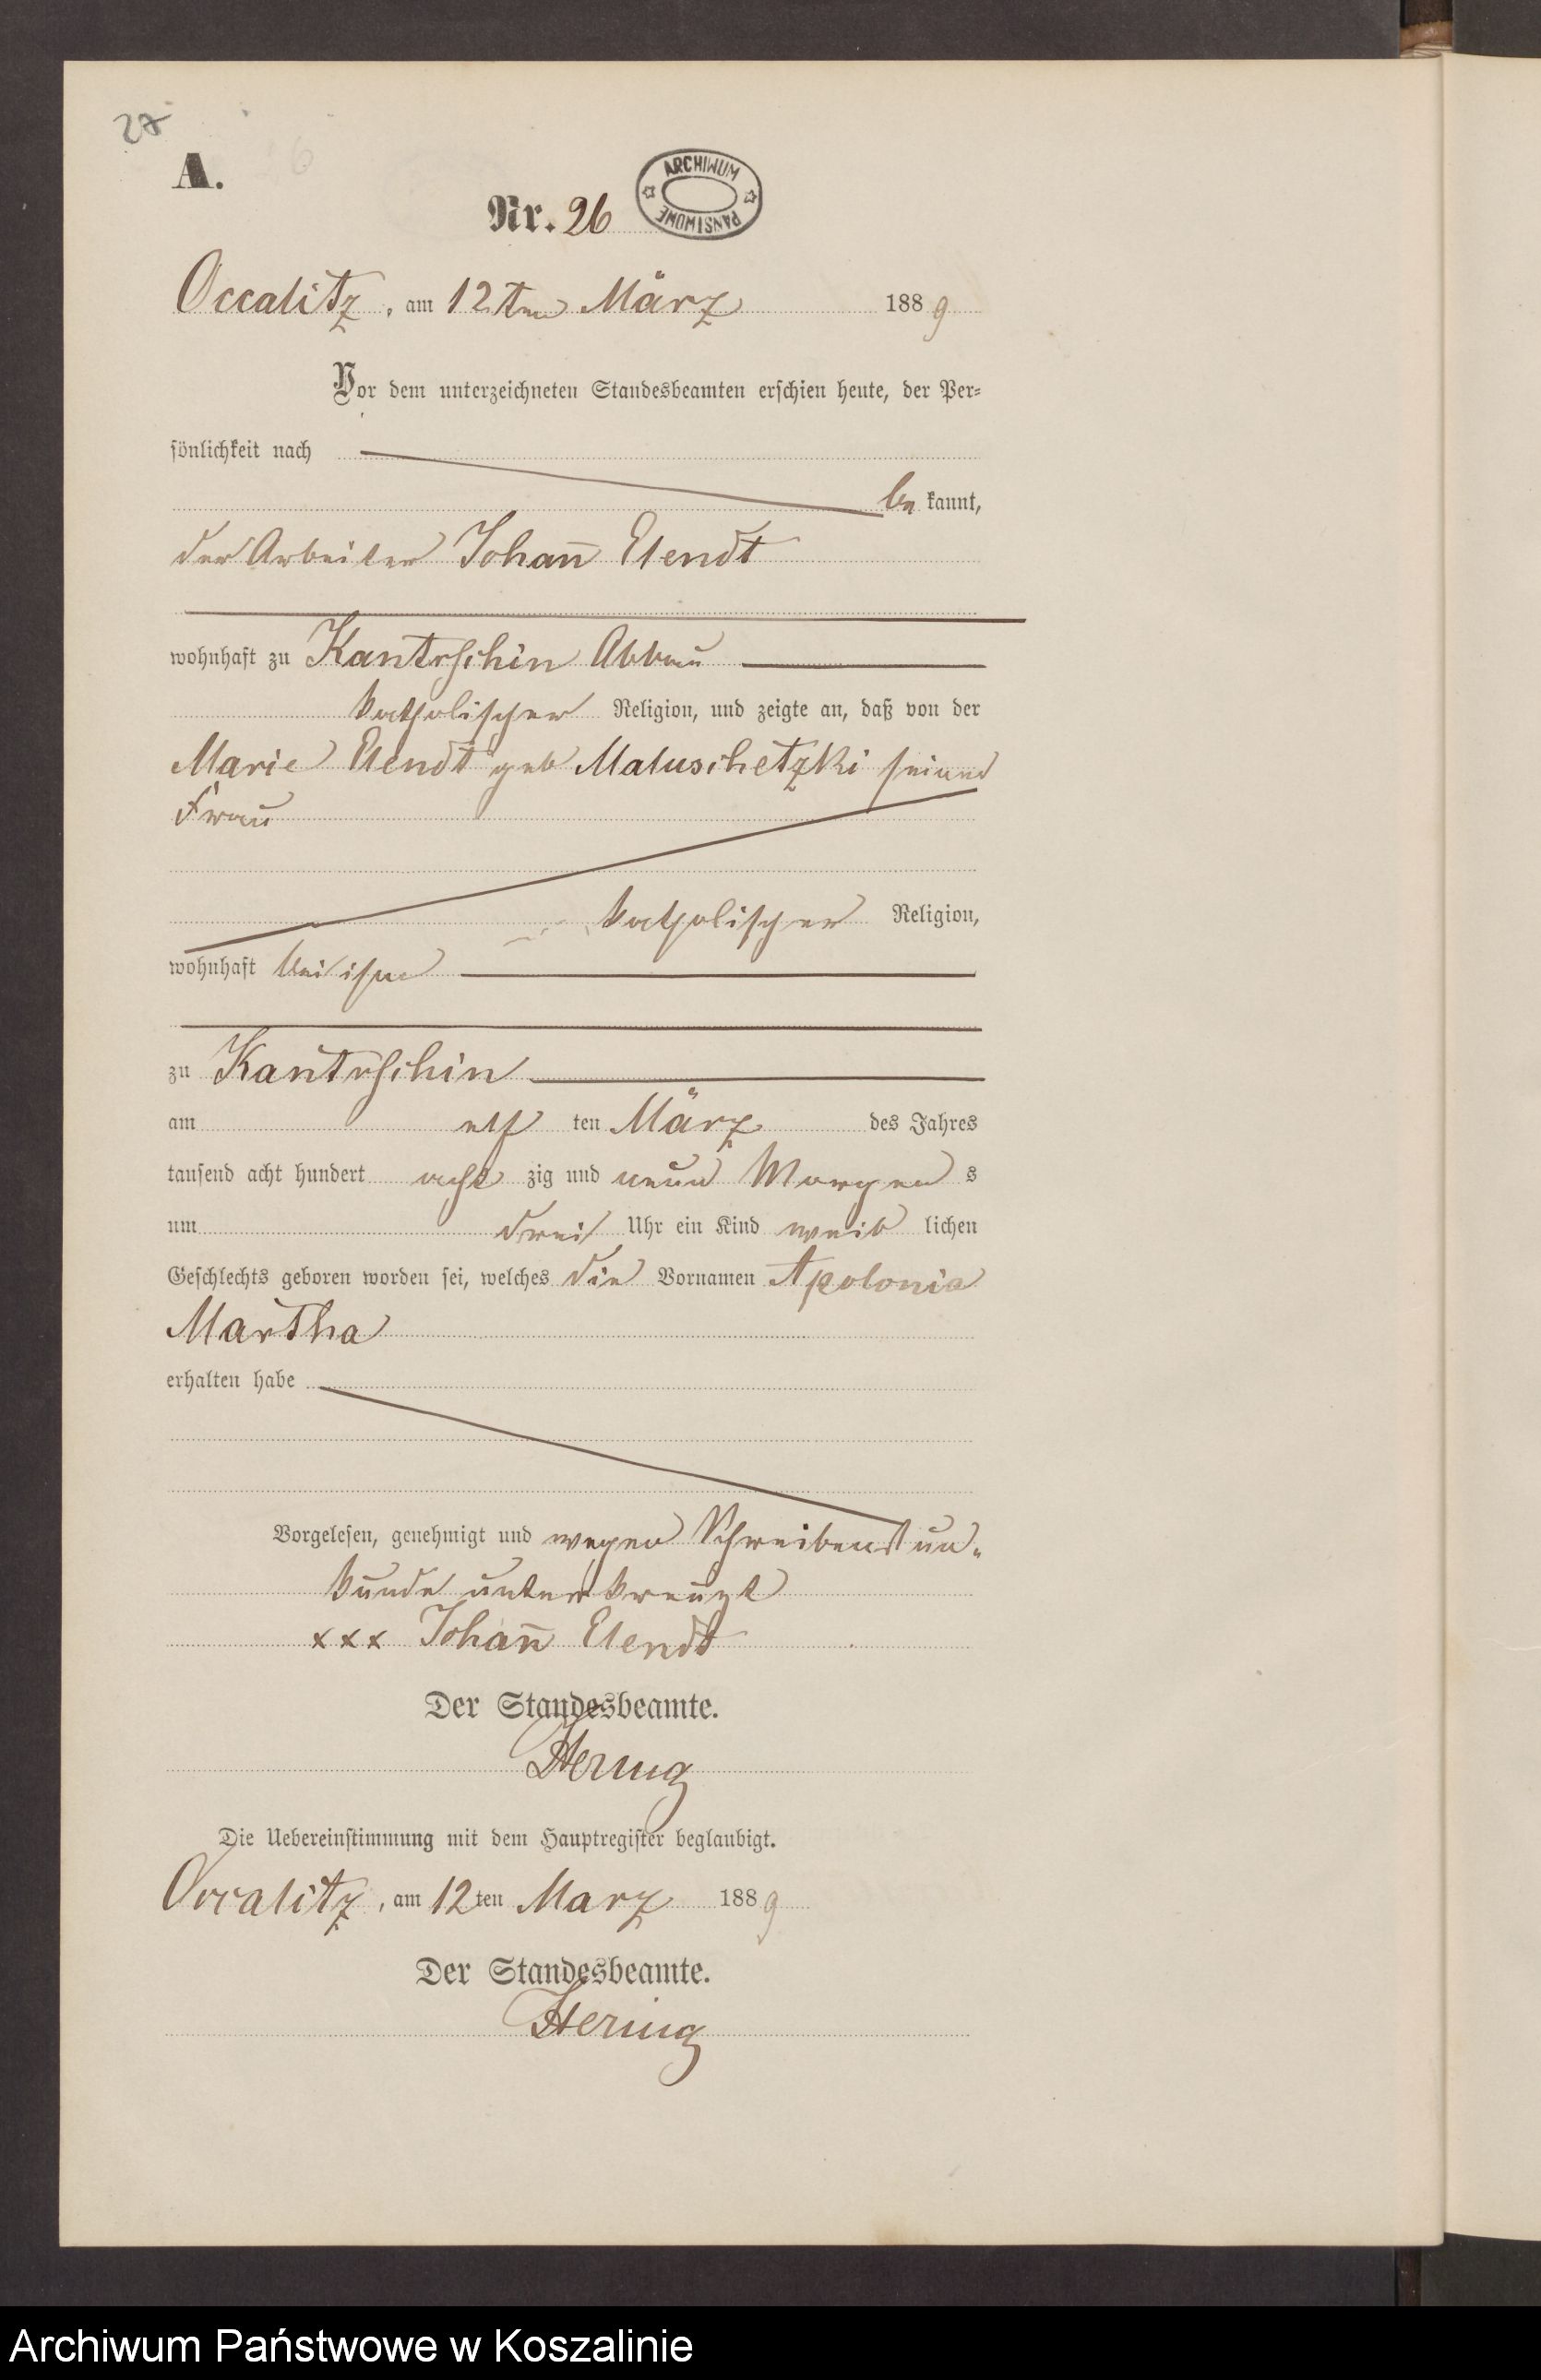 27
A.
Nr. 26
ARCHIWUM PAŃSTWOWE
Occalitz, am 12ten März 1889
Vor dem unterzeichneten Standesbeamten erschien heute, der Per=
sönlichkeit nach
be kannt,
der Arbeiter Johan̄ Elendt
wohnhaft zu Kantrschin Abbau
katholischer Religion, und zeigte an, daß von der
Marie Elendt geb Maluschetzki seiner
Frau
katholischer Religion,
wohnhaft bei ihm
zu Kantrschin
am elf ten März des Jahres
tausend acht hundert acht zig und neun Morgen s
um drei Uhr ein Kind weib lichen
Geschlechts geboren worden sei, welches die Vornamen Apolonia
Martha
erhalten habe
Vorgelesen, genehmigt und wegen Schreibens un=
kunde unterkreuzt
xxx Johan̄ Elendt
Der Standesbeamte.
Hering
Die Uebereinstimmung mit dem Hauptregister beglaubigt.
Occalitz, am 12ten Marz 1889
Der Standesbeamte.
Hering
Archiwum Państwowe w Koszalinie